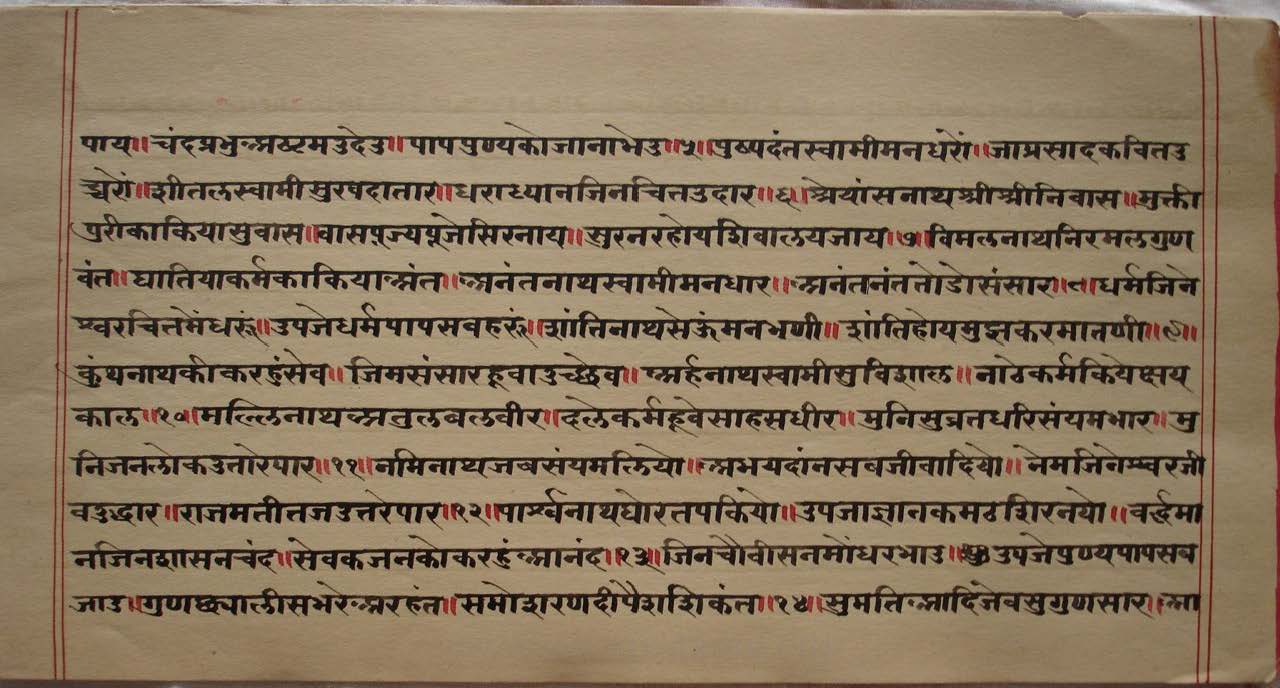 पाय॥चंदप्रभुअष्टमउदेउ॥पापपुण्यकोजानाभेउ॥५॥पुष्पदंतस्वामीमनधरों॥जाप्रसादकवितउ
च्चरों॥शीतलस्वामीसुखदातार॥धराध्यानजिनचितउदार॥६॥श्रेयांसनाथश्रीश्रीनिवास॥मुक्ती
पुरीकाकियासुवास॥वासपूज्यपूजेसिरनाय॥सुरनरहोयशिवालयजाय॥७॥विमलनाथनिरमलगुण
वंत॥घातियाकर्मकाकियाअंत॥अनंतनाथस्वामीमनधार॥अनंतनंततोडोसंसार॥८॥धर्मजिने
श्वरचितमेंधरूं॥उपजेधर्मपापसबहरूं॥शांतिनाथसेऊंमनभणी॥शांतिहोयमुझकरमातणी॥९॥
कुंथनाथकीकरहुंसेव॥जिमसंसारहूवाउच्छेव॥अर्हनाथस्वामीसुविशाल॥नाठेकर्मकियेक्षय
काल॥१०॥मल्लिनाथअतुलबलवीर॥दलेकर्महूवेसाहसधीर॥मुनिसुव्रतधरिसंयमभार॥मु
निजनलोकउतारेपार॥११॥नमिनाथजबसंयमलियो॥अभयदांनसबजीवादियो॥नेमजिनेश्वरजी
वउद्धार॥राजमतीतजउत्तरेपार॥१२॥पार्श्वनाथघोरतपकियो॥उपजाज्ञानकमठशिरनयो॥वर्द्धमा
नजिनशासनचंद॥सेवकजनकोकरहुंआनंद॥१३॥जिनचौवीसनमोंधरभाउ॥उपजेपुण्यपापसब
जाउ॥गुणछ्यालीसभरेअरहंत॥समोशरणदीपैशशिकंत॥१४॥सुमतिआदिजेवसुगुणसार॥आ